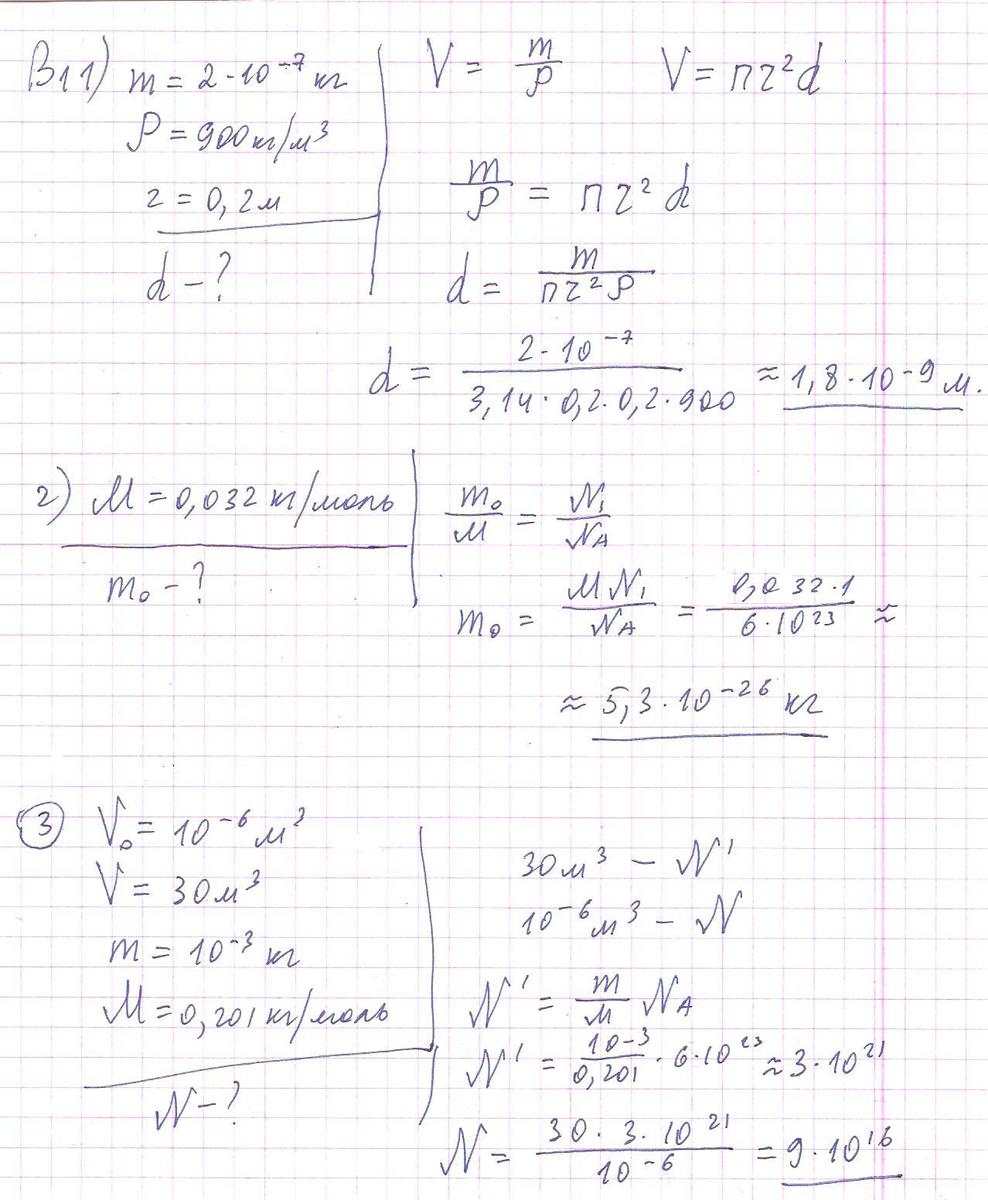 В1 1) m = 2·10⁻⁷ кг
ρ = 900 кг/м³
r = 0,2 м
d – ?
V = m/ρ V = πr²d
m/ρ = πr²d
d = m/(πr²ρ)
d = 2·10⁻⁷/(3,14·0,2·0,2·900) ≈ 1,8·10⁻⁹ м.
2) M = 0,032 кг/моль
m₀ – ?
m₀/M = N₁/N_A
m₀ = MN₁/N_A = 0,032·1/(6·10²³) ≈
≈ 5,3·10⁻²⁶ кг
3 V₀ = 10⁻⁶ м³
V = 30 м³
m = 10⁻³ кг
M = 0,201 кг/моль
N – ?
30 м³ – N'
10⁻⁶ м³ – N
N' = m/M N_A
N' = 10⁻³/0,201 · 6·10²³ ≈ 3·10²¹
N = 30·3·10²¹/10⁻⁶ = 9·10¹⁶